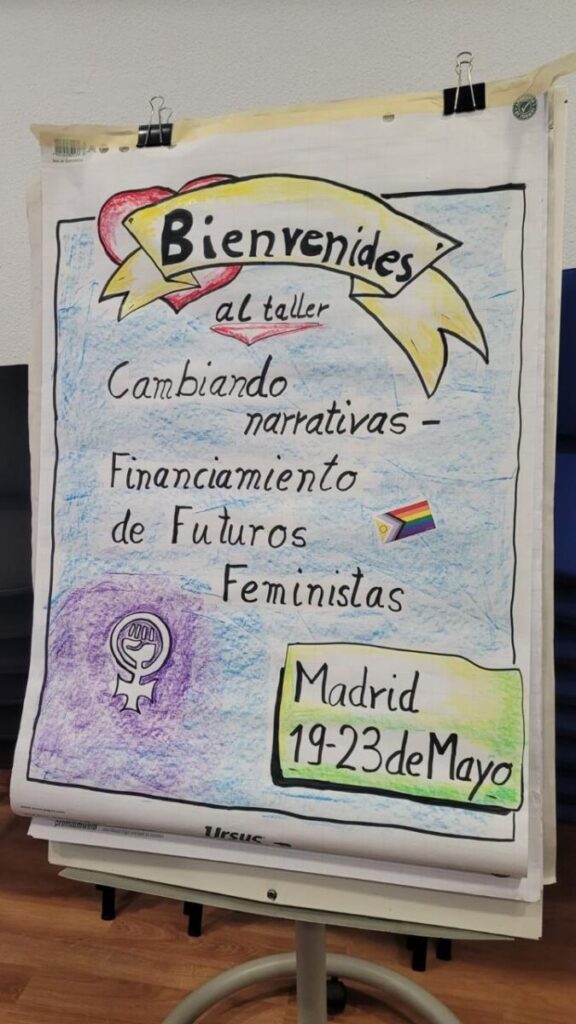 Bienvenides
al taller
Cambiando
narrativas -
Financiamiento
de Futuros
Feministas
Madrid
19-23 de Mayo
Ursus